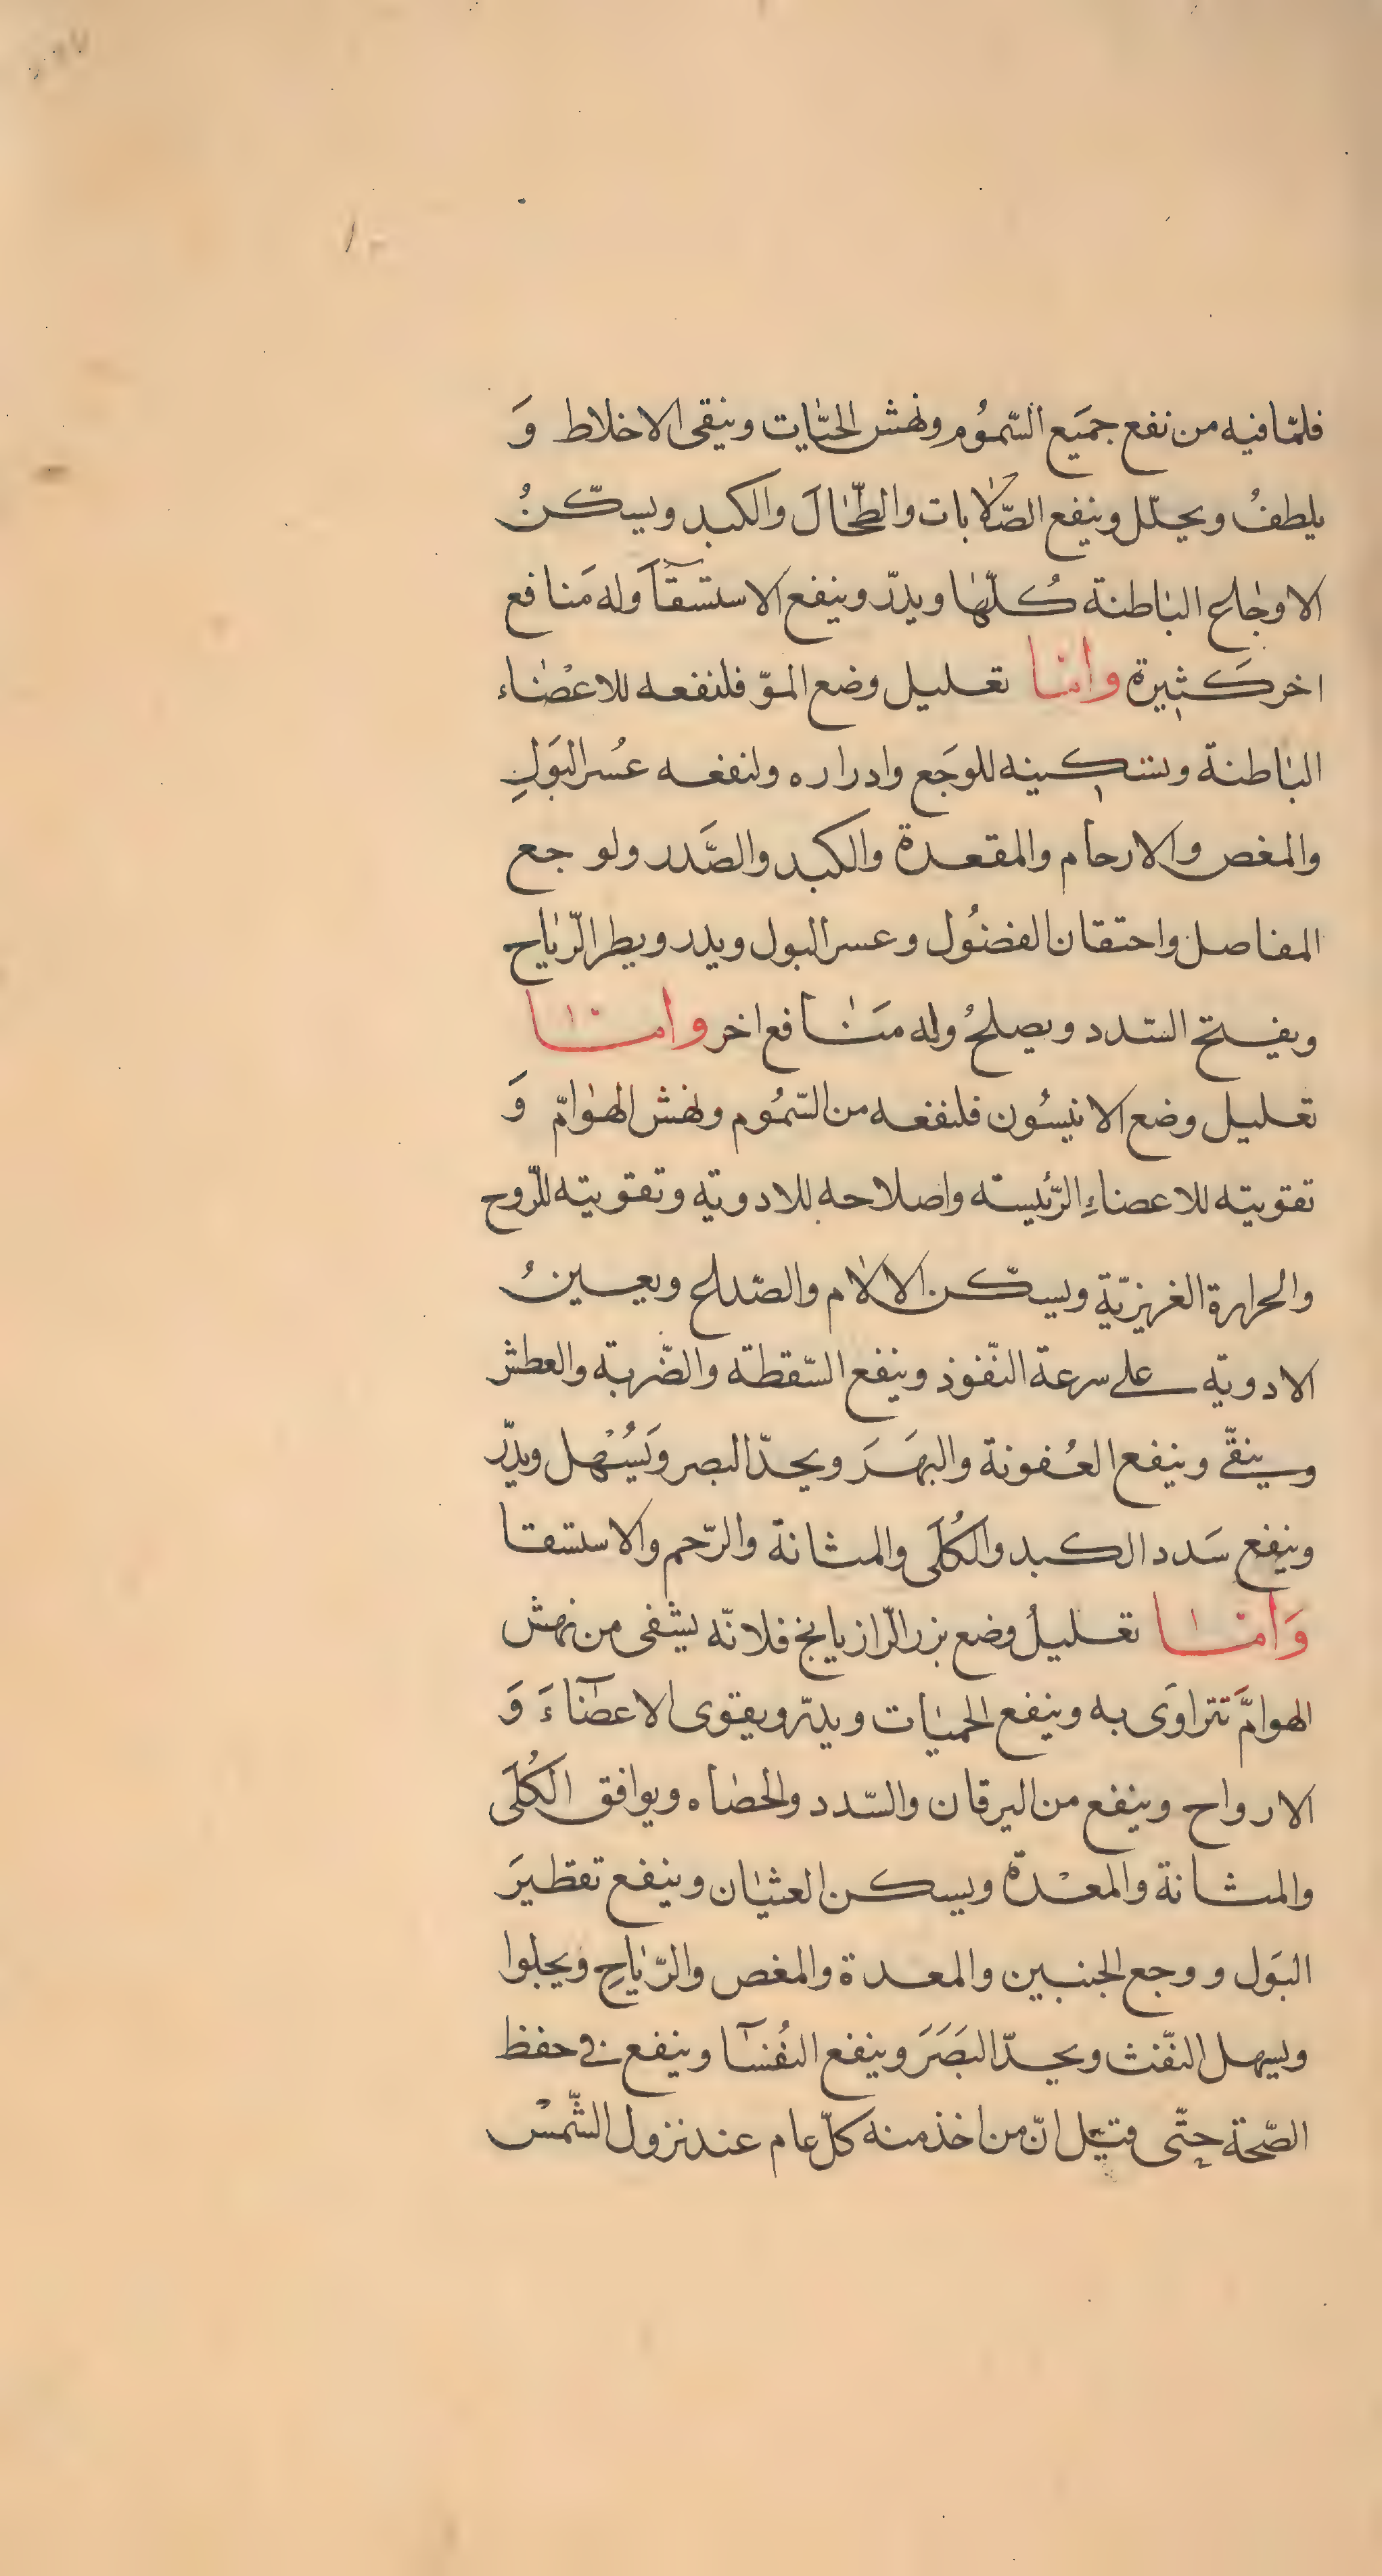 فلمّا فيه من نفع جميَع السّموُم ونهش الحيّات وينقى الاخلاط وَ
يلطفُ ويحلّل وينفع الصّلابات والطّحال والكبد ويسكّنُ
الاوجاع الباطنة كُلّها ويدرّ وينفع الاستسقآَ وله مَنافع
اخر كَثيرة وامّا تعليل وضع الموّ فلنفعه للاعْضاء
الباطنة وتسكينه للوجَع وادراره ولنفعه عُسر البَولِ
والمغص والارحام والمقعدة والكبد والصَّدر ولوجع
المفاصل واحتقان الفضُول وعسر البول ويدر ويطر الرّياح
ويفتح السّدد ويصلحُ وله مَنافع اخر وامّا
تعليل وضع الانيسُون فلنفعه من السّمُوم ونهش الهوامّ وَ
تقويته للاعضاءِ الرّئيسة واصلاحه للادوية وتقويته للرّوح
والحرارة الغريزيّة ويسكّن الالام والصّداع ويعينُ
الادوية على سرعة النّفوذ وينفع السّقطة والضّربة والعطش
وينقّى وينفع العُفونة والبهَرَ ويحدّ البصر وَيُسْهل ويدرّ
وينفع سَدد الكبد والكُلَى والمثانة والرّحم والاستسقا
وَامّا تعليلُ وضع بزر الرّازيانج فلانّه يشفى من نهش
الهوامَّ تتراوَى به وينفع الحميات ويدرّ ويقوى الاعضآءَ وَ
الارواح وينفع من اليرقان والسّدد والحصاه ويوافق الكُلَى
والمثانة والمعْدة ويسكن العثيان وينفع تقطيرَ
البَول ووجع الجنبين والمعدة والمغص والرّياحِ ويجلوا
ويسهل النّفث ويحدّ البَصَرَ وينفع النُفسآا وينفع فى حفظ
الصّحة حتّى قيل انّ من اخذ منه كلّ عام عند نزول الشّمسْ